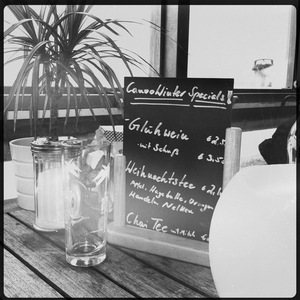 CanooWinter Specials!
Glühwein € 2.5
mit Schuß € 3.50
Weihnachtstee € 2.
Apfel, Hagebutte, Orangen
Mandeln Nelken
Chai Tee